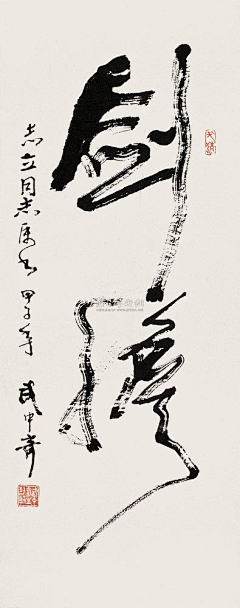 劍膽
志立同志属书 甲子年 武中奇